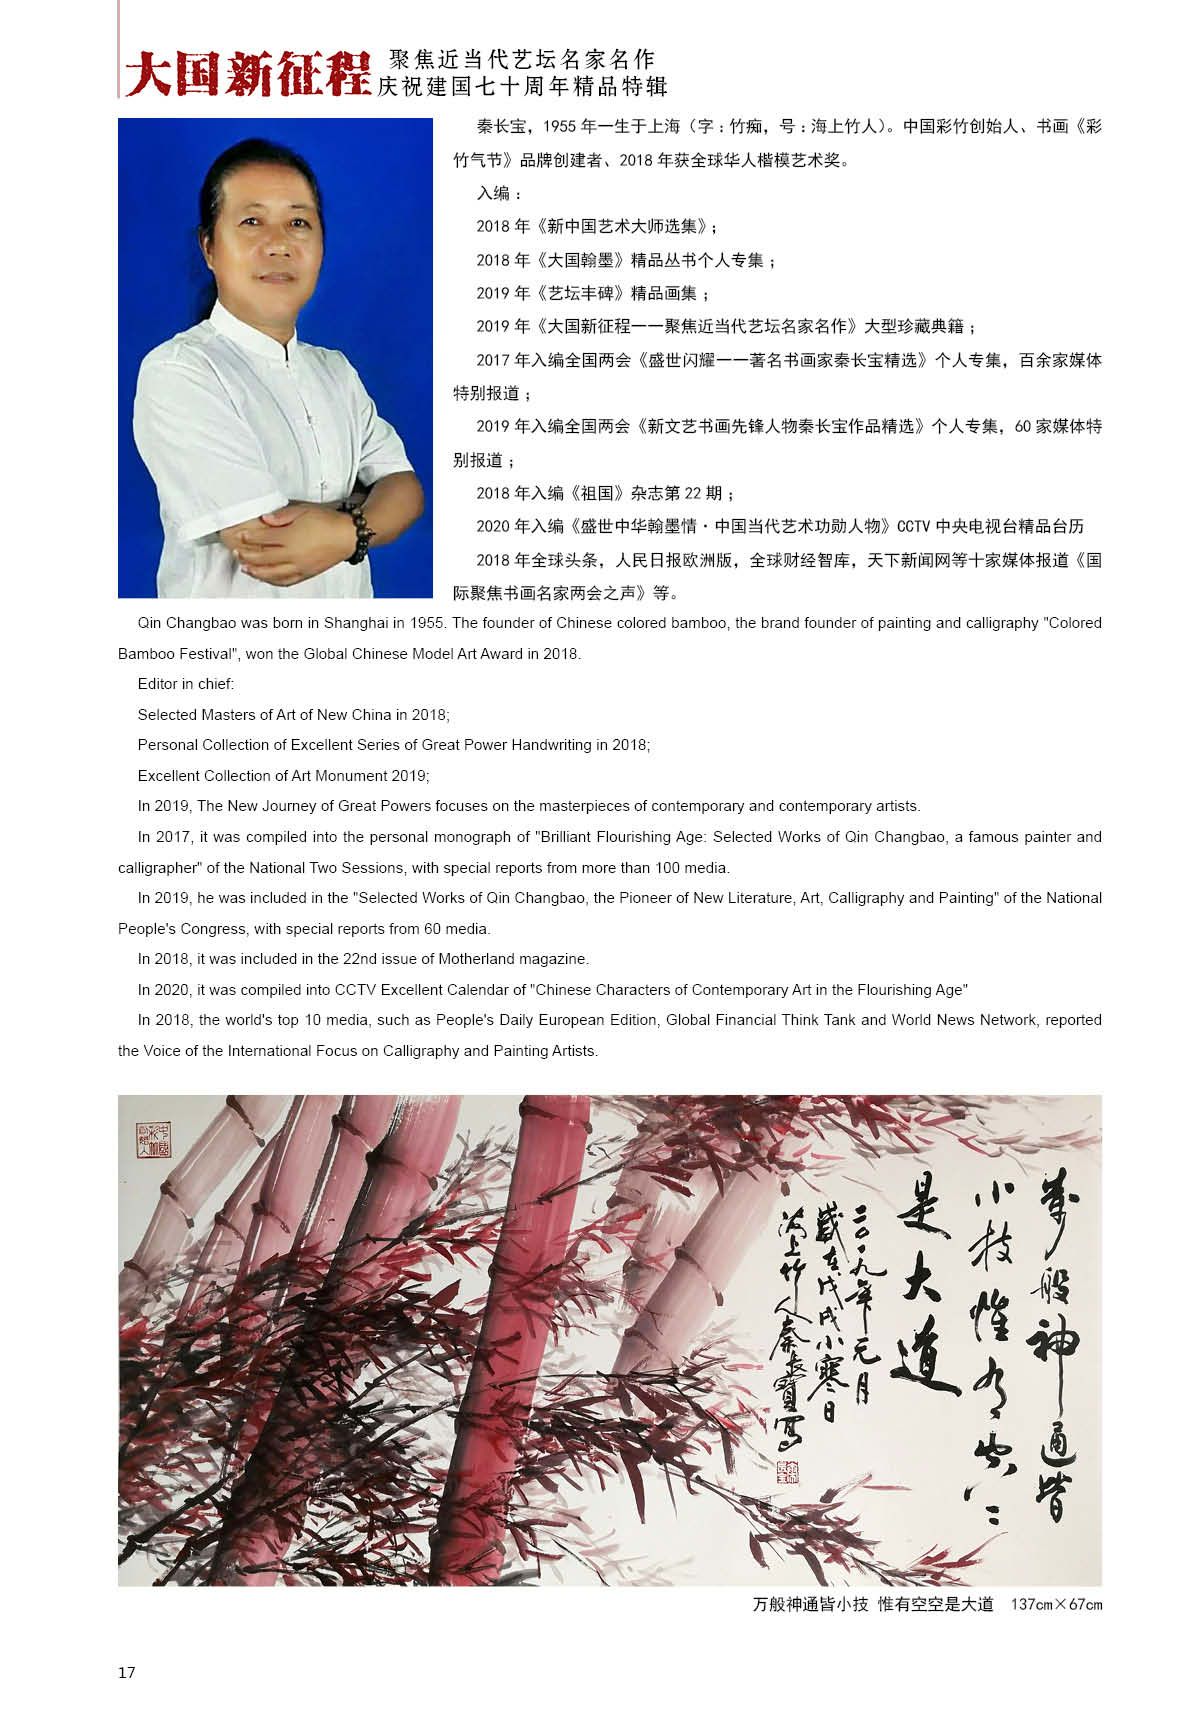 大国新征程
聚焦近当代艺坛名家名作
庆祝建国七十周年精品特辑
秦长宝，1955 年一生于上海（字：竹痴，号：海上竹人）。中国彩竹创始人、书画《彩
竹气节》品牌创建者、2018 年获全球华人楷模艺术奖。
入编：
2018 年《新中国艺术大师选集》；
2018 年《大国翰墨》精品丛书个人专集；
2019 年《艺坛丰碑》精品画集；
2019 年《大国新征程一一聚焦近当代艺坛名家名作》大型珍藏典籍；
2017 年入编全国两会《盛世闪耀一一著名书画家秦长宝精选》个人专集，百余家媒体
特别报道；
2019 年入编全国两会《新文艺书画先锋人物秦长宝作品精选》个人专集，60 家媒体特
别报道；
2018 年入编《祖国》杂志第 22 期；
2020 年入编《盛世中华翰墨情·中国当代艺术功勋人物》CCTV 中央电视台精品台历
2018 年全球头条，人民日报欧洲版，全球财经智库，天下新闻网等十家媒体报道《国
际聚焦书画名家两会之声》等。
Qin Changbao was born in Shanghai in 1955. The founder of Chinese colored bamboo, the brand founder of painting and calligraphy "Colored
Bamboo Festival", won the Global Chinese Model Art Award in 2018.
Editor in chief:
Selected Masters of Art of New China in 2018;
Personal Collection of Excellent Series of Great Power Handwriting in 2018;
Excellent Collection of Art Monument 2019;
In 2019, The New Journey of Great Powers focuses on the masterpieces of contemporary and contemporary artists.
In 2017, it was compiled into the personal monograph of "Brilliant Flourishing Age: Selected Works of Qin Changbao, a famous painter and
calligrapher" of the National Two Sessions, with special reports from more than 100 media.
In 2019, he was included in the "Selected Works of Qin Changbao, the Pioneer of New Literature, Art, Calligraphy and Painting" of the National
People's Congress, with special reports from 60 media.
In 2018, it was included in the 22nd issue of Motherland magazine.
In 2020, it was compiled into CCTV Excellent Calendar of "Chinese Characters of Contemporary Art in the Flourishing Age"
In 2018, the world's top 10 media, such as People's Daily European Edition, Global Financial Think Tank and World News Network, reported
the Voice of the International Focus on Calligraphy and Painting Artists.
萬般神通皆
小技惟有空空
是大道
二〇一九年元月
歲在戊戌小寒日
海上竹人秦長寶寫
万般神通皆小技 惟有空空是大道 137cm×67cm
17